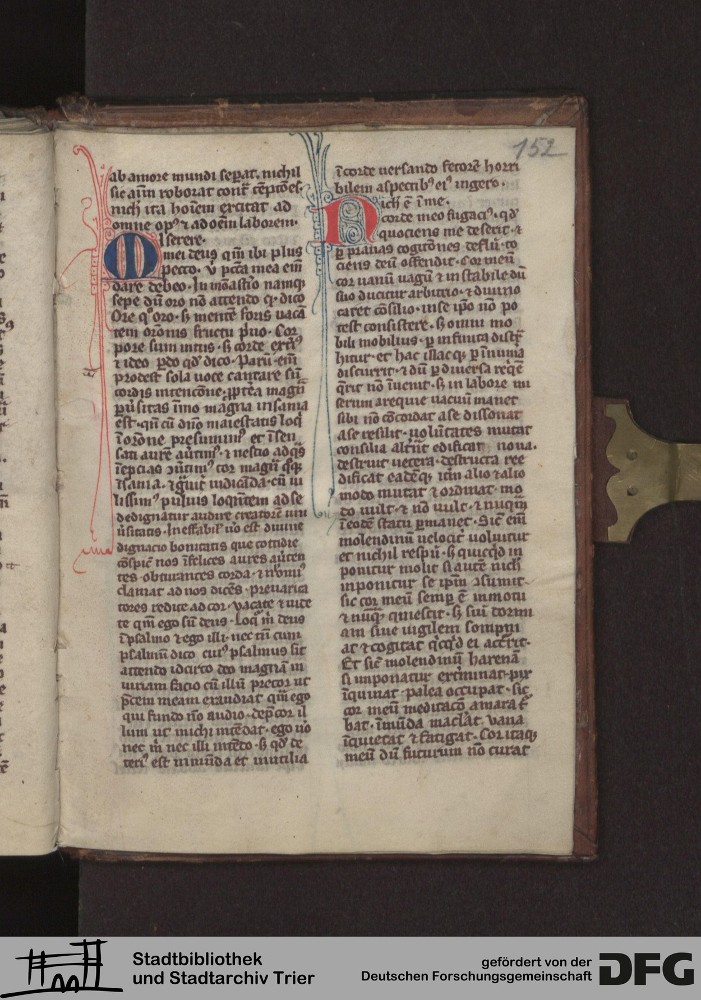 152
ab amore mundi sepat. nichil
sic aīm roborat cont͛ tēptōes.
nich ita hoīem excitat ad
omne op⁹ ⁊ ad oēm laborem.
Miserere.
mei deus qm̄ ibi plus
pecco. v pctā mea em̄
dare debeo. In mōastīo namq;
sepe dn̄ oro nō attendo q̄ dico
Ore qͦ oro. s; mente foris vacā
tem orōnis fructu pͥuo. Cor
pore sum intus. s; corde extͣ⁹
⁊ ideo pdo qd̓ dico. Parū em̄
prodest sola uoce cantare sn̄
cordis intencōne. ꝓptēa magn̄
puͥsitas īmo magna insania
est. qn̄ cū dn̄o maiestatis loq̄
ī orōne presumim⁹ et īsen
sati aurē auͥtim⁹. ⁊ nescio ad q̄s
īepcias
ī sania. ⁊
lissim⁹ puluis loquētem ad se
dedignatur audire creatorē uni
uͥsitatis. Ineffabilˀ uͦo est diuine
dignacio bonitatis que cottidie
cōspic̄ nos īfelices aures auͥten
tes. obturantes corda. ⁊
clamat ad nos dicēs. preuarica
tores redite ad cor. vacate ⁊ uide
te qm̄ ego sū deus. Loqͥ m̄ deus
ī psalmo ⁊ ego illi. nec tn̄ cum
psalmū dico cui⁹ psalmus sit
attendo idcirco deo magnā in
iuriam facio cū illū precor ut
pͥcem meam exaudiat qm̄ ego
qui fundo nō audio. dep̄cor il
lum ut michi intēdat. ego uͦo
nec m̄ nec illi intēdo. s; qd̓ de
teri⁹ est inmūda et inutilia
ī corde uersando fetorē horri
bilem aspectib⁹ ei⁹ ingero.
Nich ē ī me.
corde meo fugaci⁹. qd̓
quociens me deserit ⁊
p prauas cogitōnes defluͥ. to
ciens deū offendit. Cor meū
cor uanū vagū ⁊ instabile dū
suo ducitur arbitrio. ⁊ diuino
caret cōsilio. in se ip̄o nō po
test consistere. s; omni mo
bili mobilius. p infinita distͣ
hitur. et hac illacq; p īnūma
discurrit. ⁊ dū p diuersa reqͥe
qͣrit nō īuenit. s; in labore mi
serum a requie uacuū manet
sibi nō cōcordat a se dissonat
a se resilit. uolūtates mutat
consilia altͥūt edificat noua.
destruit uetera. destructa ree
dificat eadēq; itm̄ alio ⁊ alio
modo mutat ⁊ ordinat. mo
do uult. ⁊ nō uult. ⁊ nūqͣm
ī eodē statu pmanet. Sic̄ em̄
molendinū uelocit̓ voluitur
et nichil respuͥ. s; quicqͥd in
ponitur molit. si autē nichˡ
inponitur se ip̄m ɔsumit.
sic cor meū semp ē in motu
⁊ nūqͣ quiescit. s; siue dormi
am siue vigilem sompni
at ⁊ cogitat qͥcqͥd ei accͥrit.
Et sic̄ molendinū harenā
si imponatur ext̓minat. pix
ī quinat. palea occupat. sic
cor meū meditacō amara t͛
bat. īmūda maclͣat. vana
īquietat ⁊ fatigat. Cor itaq;
meū dū futurum nō curat
Stadtbibliothek
und Stadtarchiv Trier
gefördert von der
Deutschen Forschungsgemeinschaft
DFG